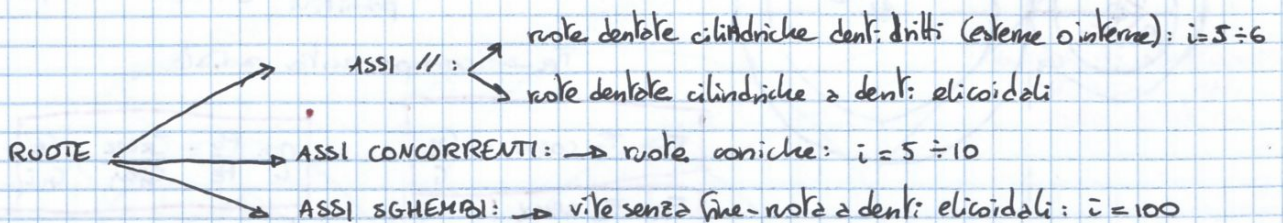 ruote dentate cilindriche denti dritti (esterne o interne): i=5÷6
ASSI // :
ruote dentate cilindriche a denti elicoidali
RUOTE
ASSI CONCORRENTI: → ruote coniche: i = 5÷10
ASSI SGHEMBI: → vite senza fine-ruota a denti elicoidali: i = 100